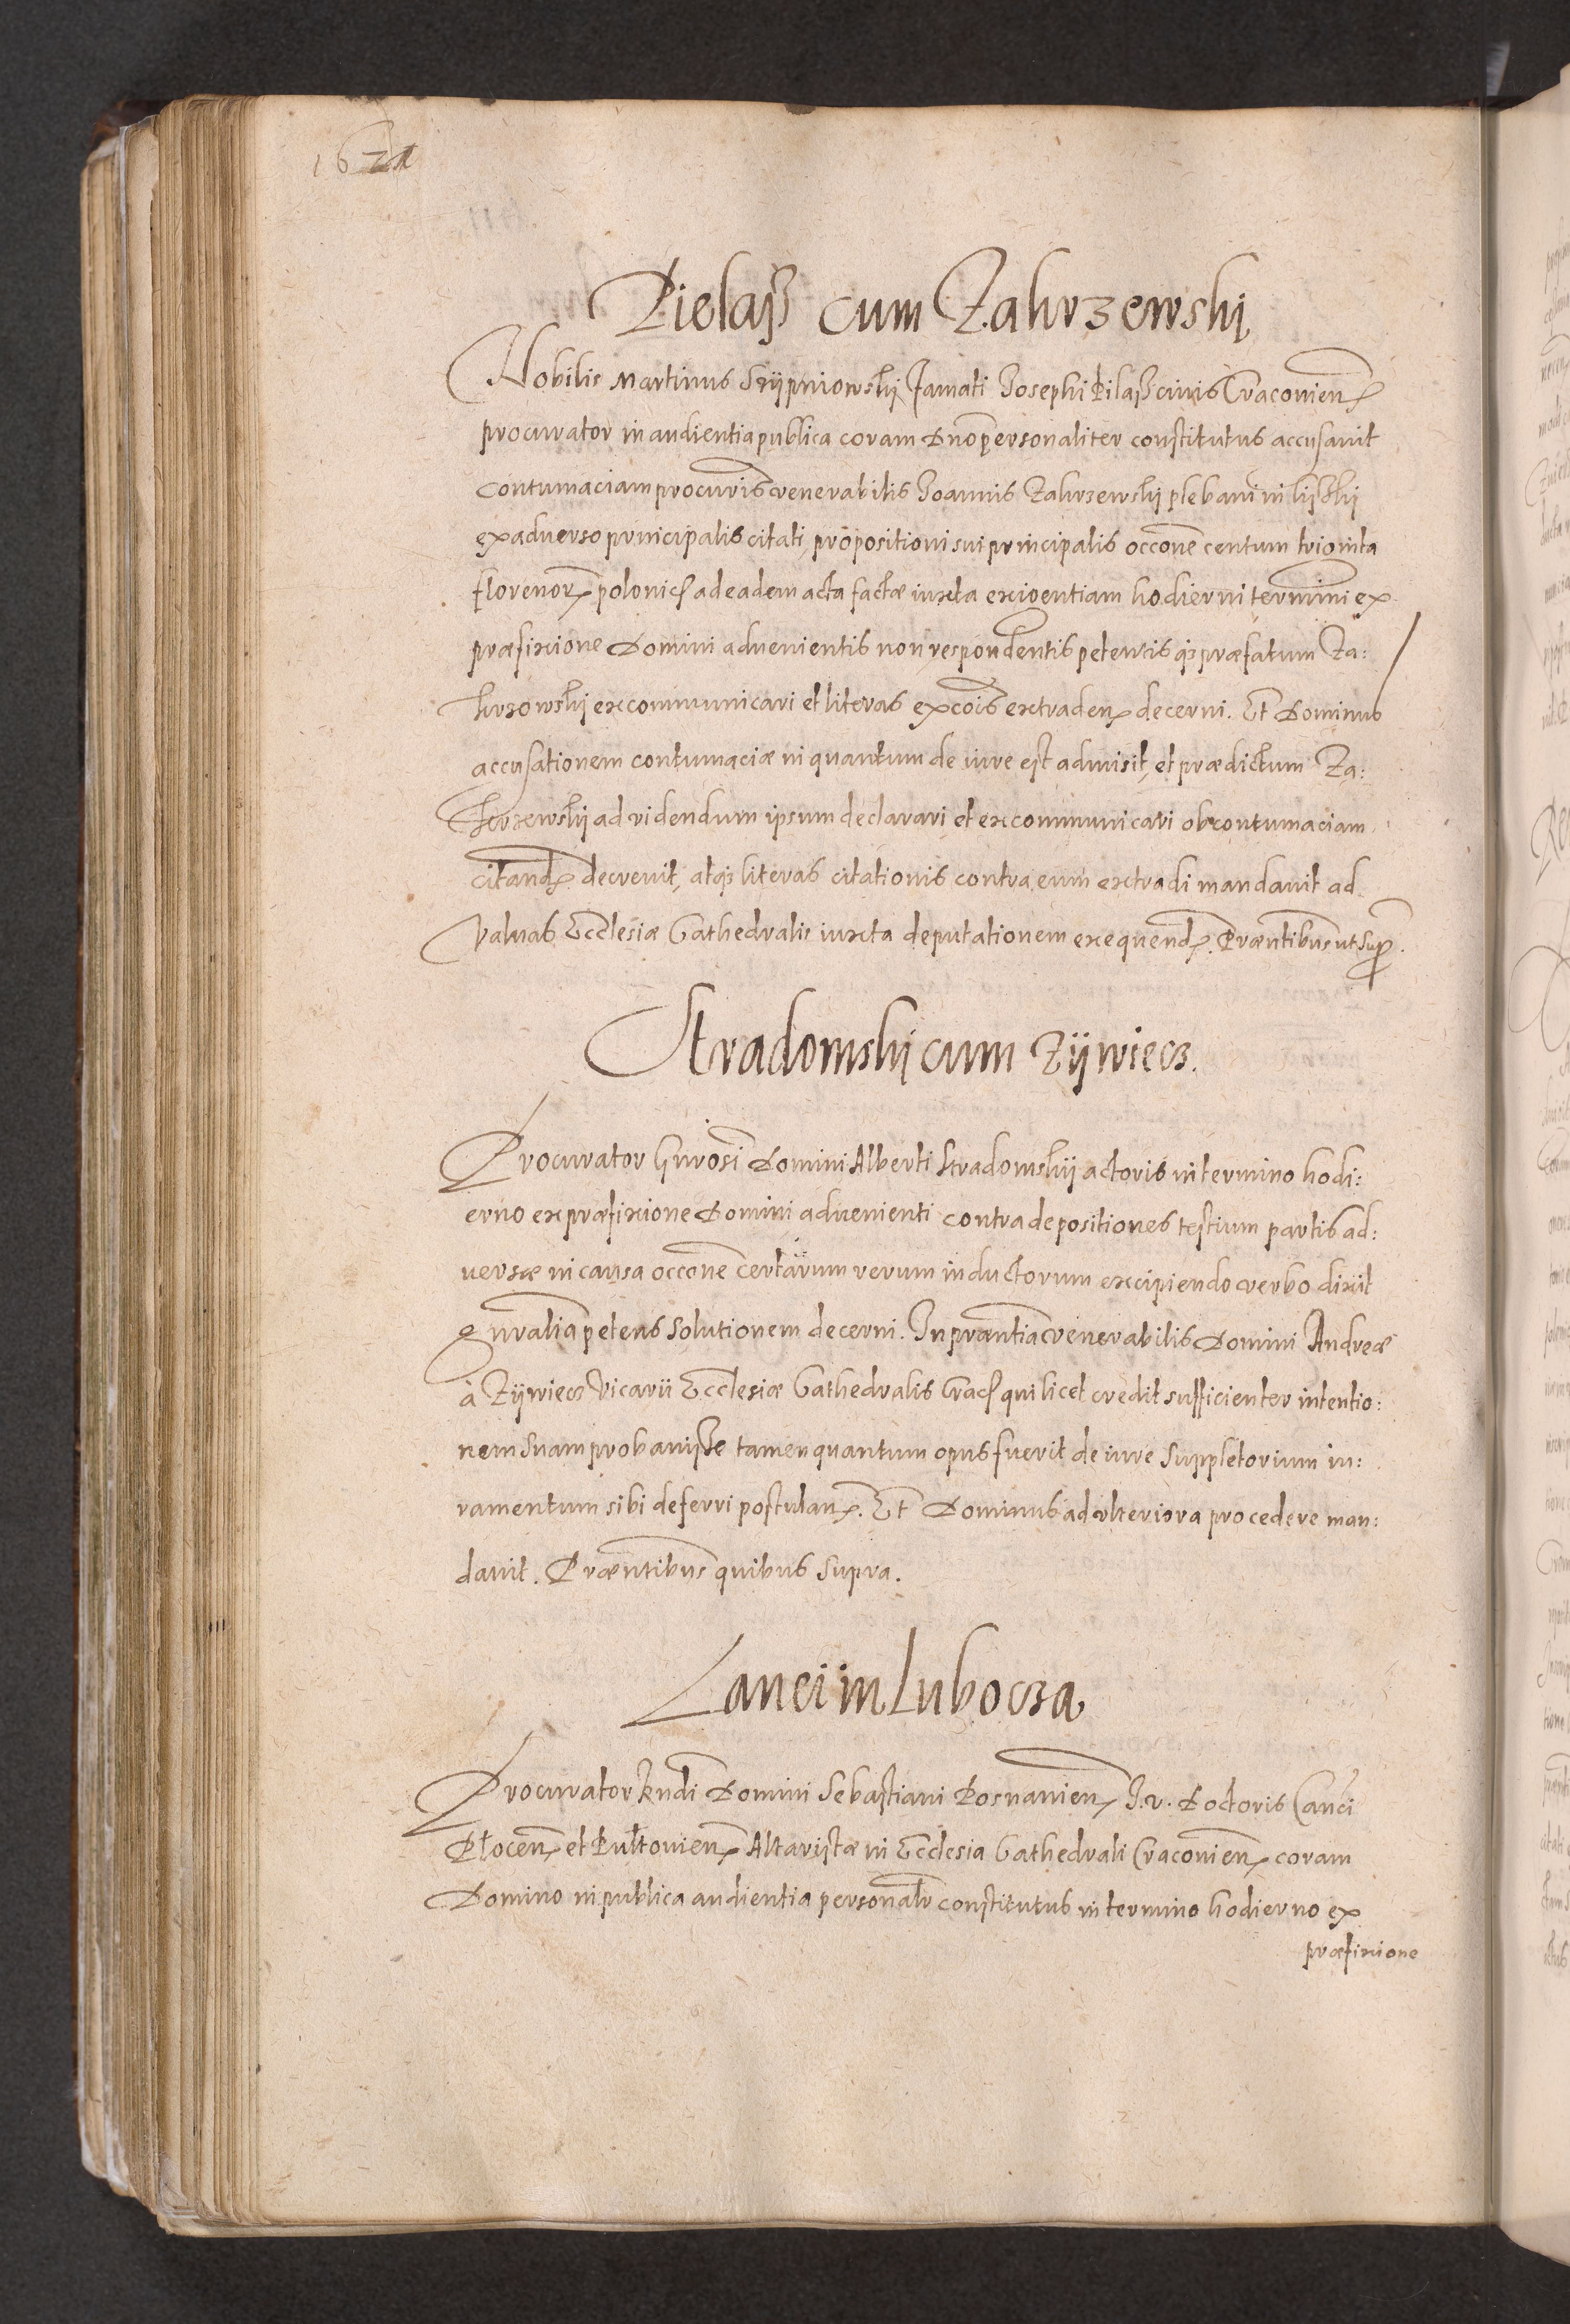 1621
Pielaß cum Zakrzewski
Nobilis Martinus Skrzypniowskj famati Josephi Pilaß civis Cracovien
procurator in audientia publica coram Dno personaliter constitutus accusavit
contumaciam procuris venerabilis Joannis Zakrzewskj plebani in lisskj
ex adverso principalis citati, propositioni sui principalis occone centum triginta
florenor polonic ad eadem acta factæ iuxta exigentiam hodierni termini ex
præfixione Domini advenientis non respondentis petentis q3 præfatum Za:
krzowskj excommunicari et literas excois extraden decerni. Et Dominus
accusationem contumaciæ in quantum de iure est admisit, et prædictum Za:
krzewskj ad videndum ipsum declarari et excommunicari ob contumaciam
citand decrevit, atq3 literas citationis contra eum extradi mandavit ad
valvas Ecclesiæ Cathedralis iuxta deputationem exequend. Præntibus ut sup.
Stradomskj cum Zÿwiecz.
Procurator Gnrosi Domini Alberti Stradomskij actoris in termino hodi:
erno ex præfixione Domini advenienti contra depositiones testium partis ad:
versæ in causa occone certarum rerum inductorum excipiendo verbo dixit
gnralia petens solutionem decerni. In præntia venerabilis Domini Andreæ
à Zÿwiecz Vicarii Ecclesiæ Cathedralis Crac qui licet credit sufficienter intentio:
nem suam probavisse tamen quantum opus fuerit de iure suppletorium iu:
ramentum sibi deferri postulan. Et Dominus ad ulteriora procedere man:
davit. Præntibus quibus supra.
Lanei in Lubocza
Procurator Rndi Domini Sebastiani Posnanien J. v. Doctoris Canci
Plocen et Pultovien Altaristæ in Ecclesia Cathedrali Cracovien coram
Domino in publica audientia personalr constitutus in termino hodierno ex
præfixione